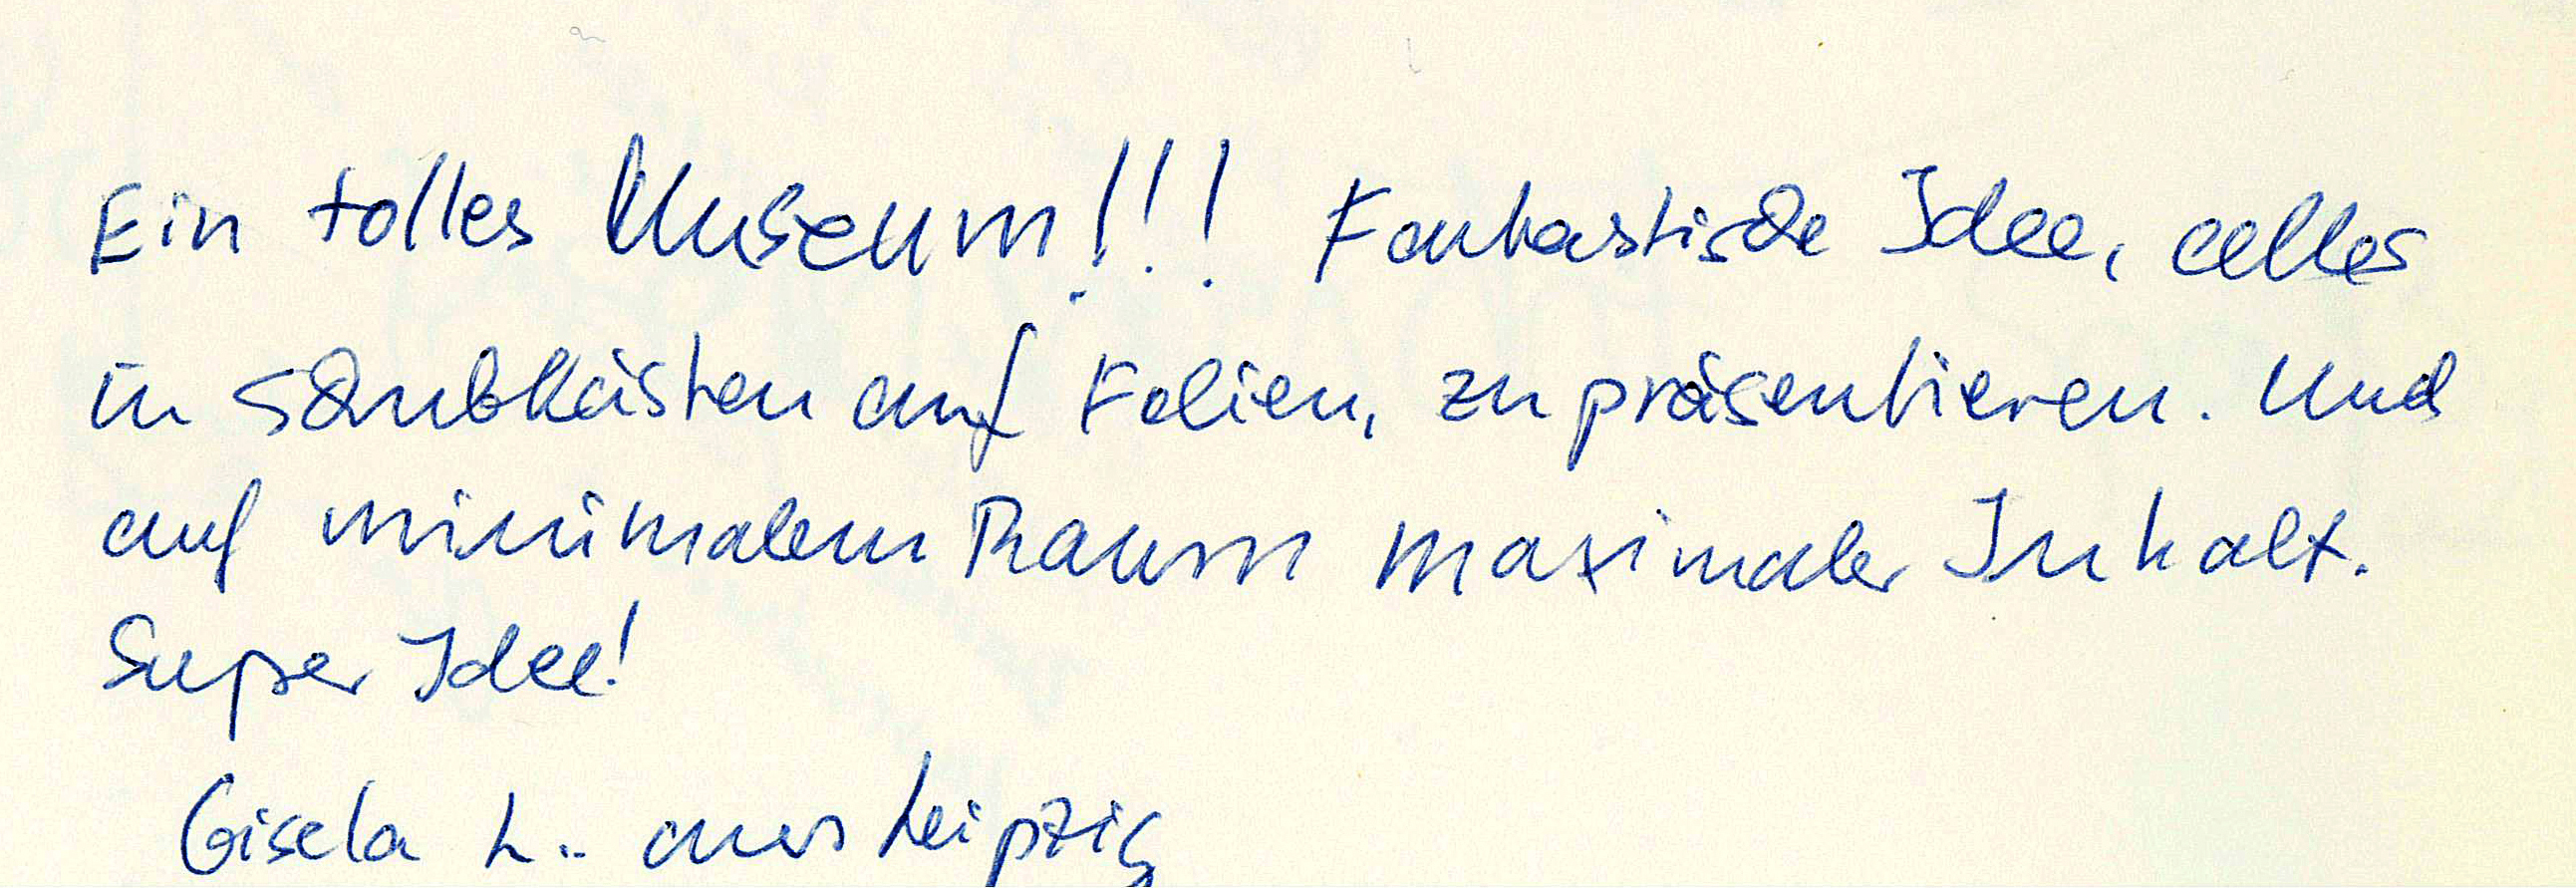 Ein tolles Museum!!! Fantastische Idee, alles
in Schubkästen auf Folien, zu präsentieren. Und
auf minimalem Raum maximaler Inhalt.
Super Idee!
Gisela L. aus Leipzig